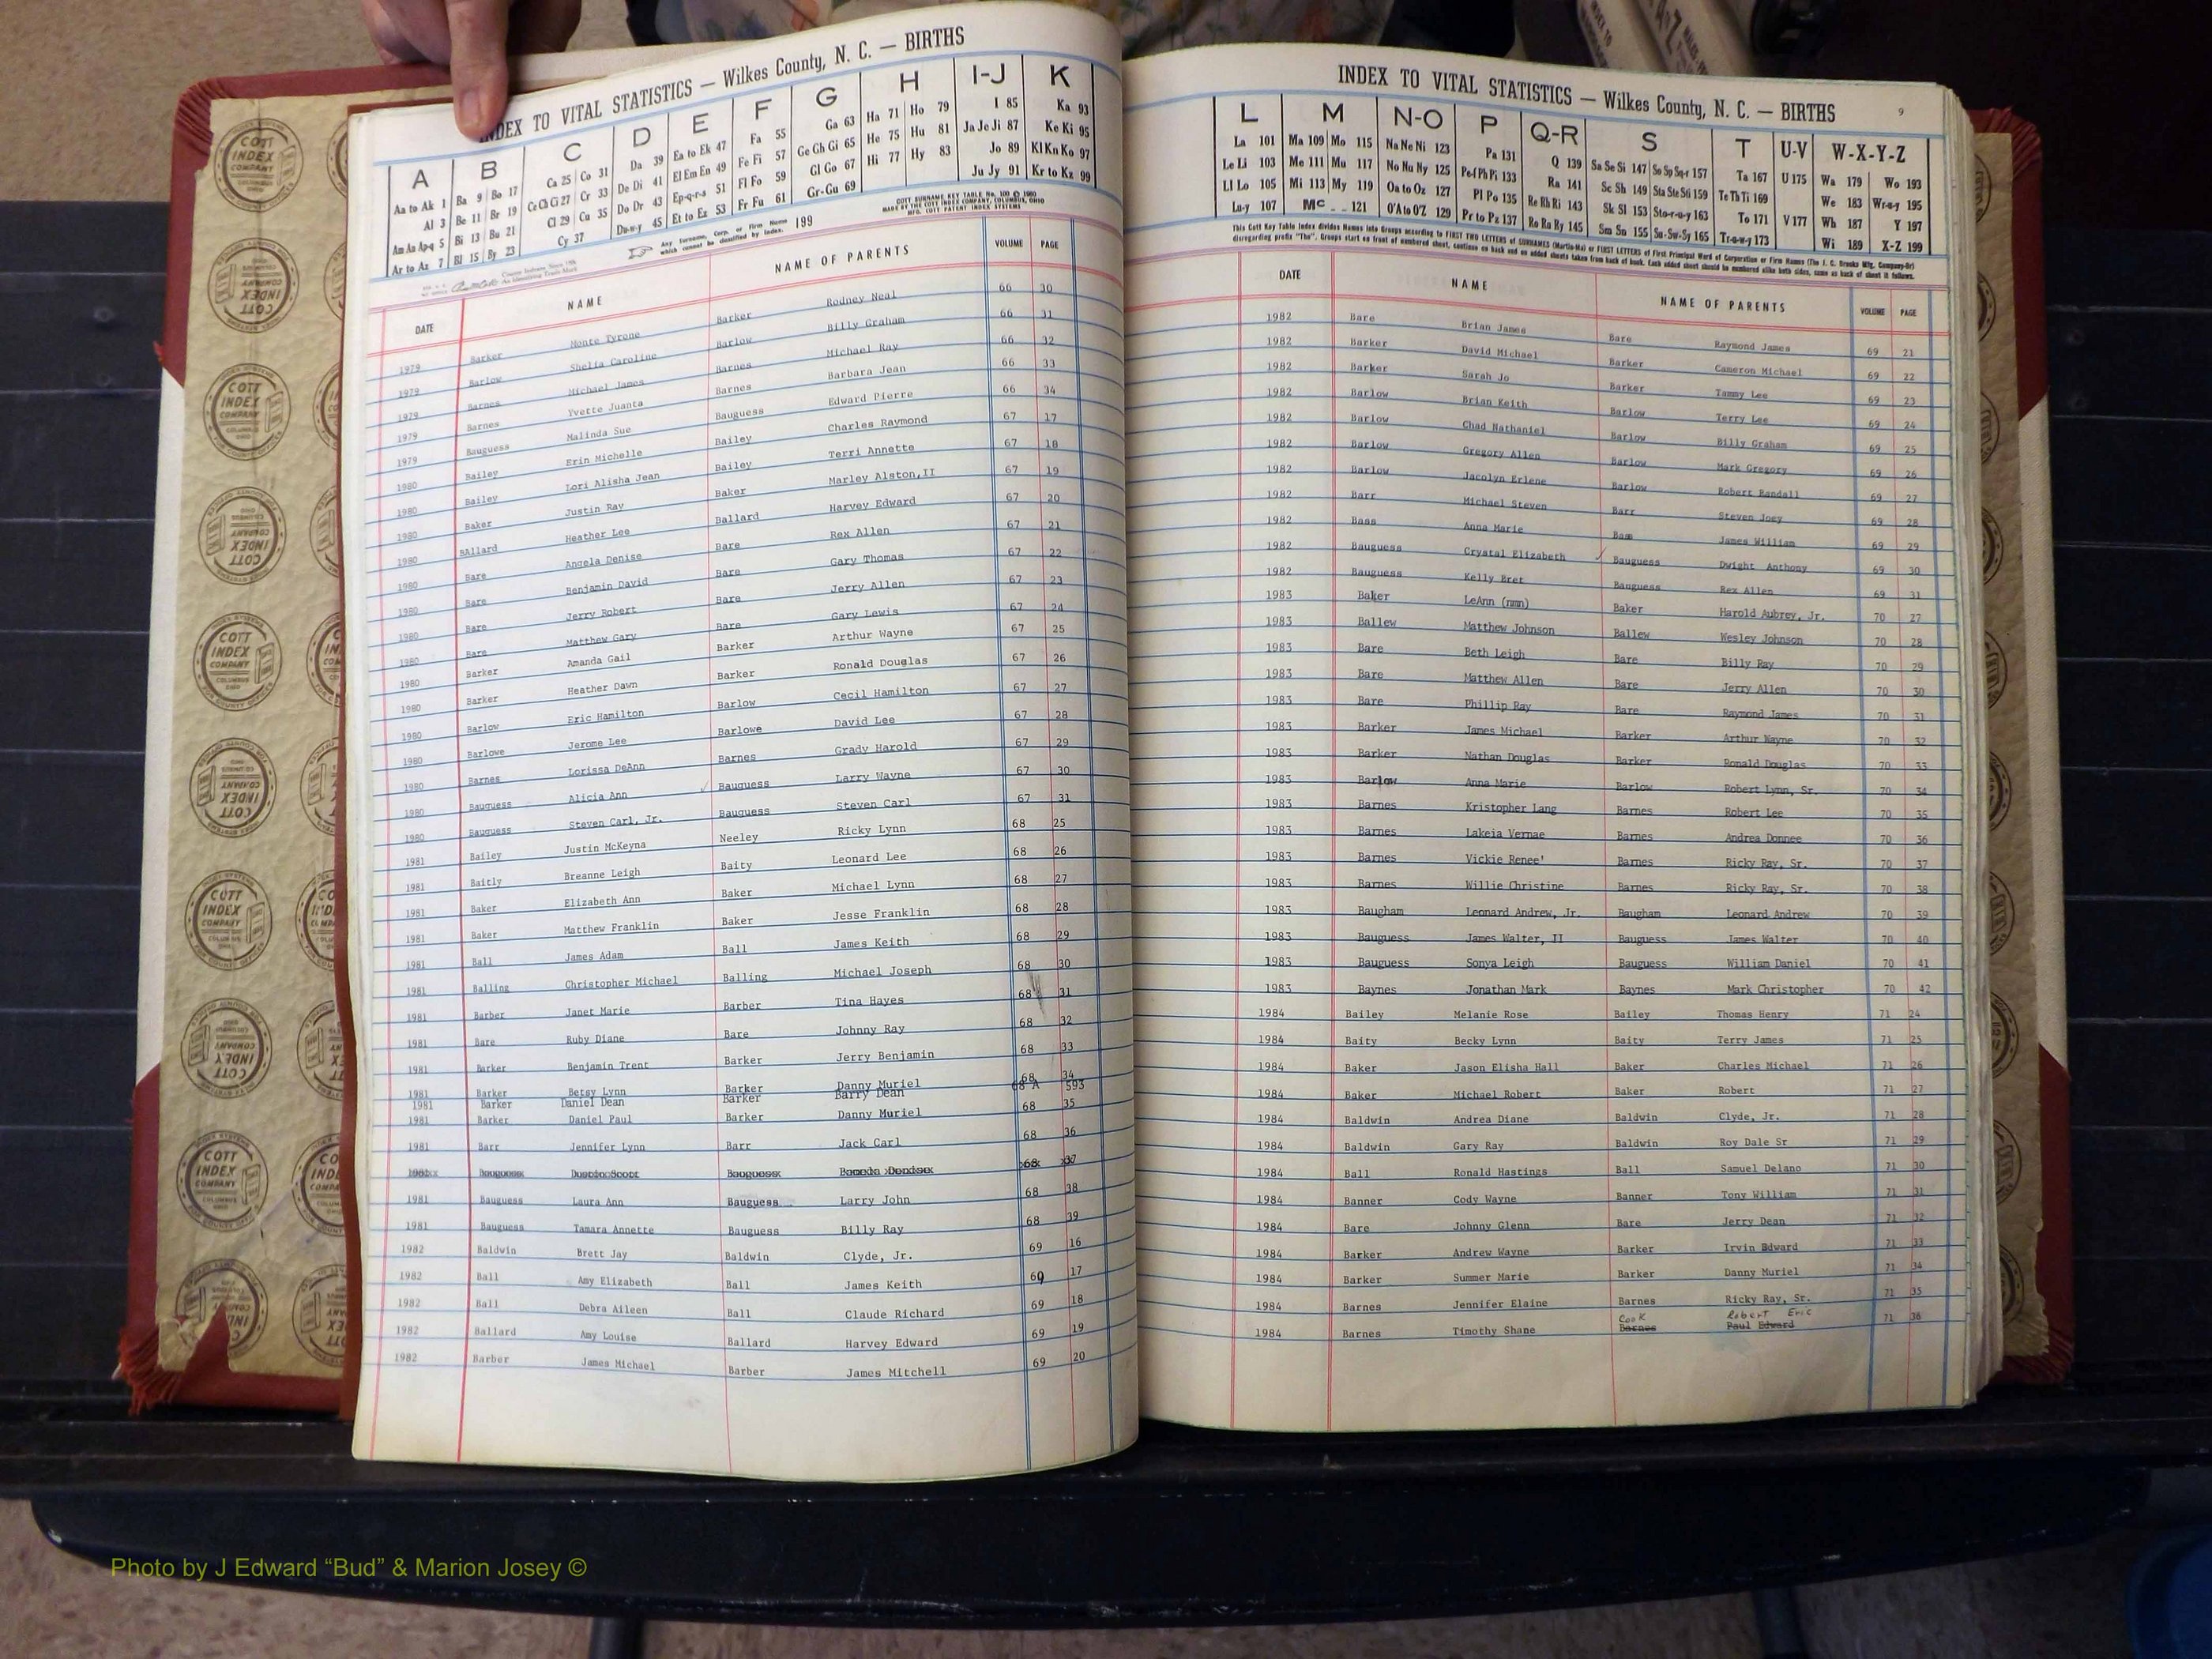 INDEX TO VITAL STATISTICS — Wilkes County, N. C. — BIRTHS
A B C D E F G H I-J K
Aa to Ak 1 Ba 9 Bo 17 Ca 25 Co 31 Da 39 Ea to Ek 47 Fa 55 Ga 63 Ha 71 Ho 79 I 85 Ka 93
Al 3 Be 11 Br 19 Ce Ch Ci 27 Cr 33 De Di 41 El Em En 49 Fe Fi 57 Ge Gh Gi 65 He 75 Hu 81 Ja Je Ji 87 Ke Ki 95
Am An Ap-q 5 Bi 13 Bu 21 Cl 29 Cu 35 Do Dr 43 Ep-q-r-s 51 Fl Fo 59 Gl Go 67 Hi 77 Hy 83 Jo 89 Kl Kn Ko 97
Ar to Az 7 Bl 15 By 23 Cy 37 Du-w-y 45 Et to Ez 53 Fr Fu 61 Gr-Gu 69 Ju Jy 91 Kr to Kz 99
Any Surname, Corp. or Firm Name which cannot be classified by index. 199
COTT SURNAME KEY TABLE No. 100 © 1980
MADE BY THE COTT INDEX COMPANY, COLUMBUS, OHIO
MFG. COTT PATENT INDEX SYSTEMS
DATE NAME NAME OF PARENTS VOLUME PAGE
1979 Barker Monte Tyrone Barker Rodney Neal 66 30
1979 Barlow Shelia Caroline Barlow Billy Graham 66 31
1979 Barnes Michael James Barnes Michael Ray 66 32
1979 Barnes Yvette Juanta Barnes Barbara Jean 66 33
1979 Bauguess Malinda Sue Bauguess Edward Pierre 66 34
1980 Bailey Erin Michelle Bailey Charles Raymond 67 17
1980 Bailey Lori Alisha Jean Bailey Terri Annette 67 18
1980 Baker Justin Ray Baker Marley Alston,II 67 19
1980 BAllard Heather Lee Ballard Harvey Edward 67 20
1980 Bare Angela Denise Bare Rex Allen 67 21
1980 Bare Benjamin David Bare Gary Thomas 67 22
1980 Bare Jerry Robert Bare Jerry Allen 67 23
1980 Bare Matthew Gary Bare Gary Lewis 67 24
1980 Barker Amanda Gail Barker Arthur Wayne 67 25
1980 Barker Heather Dawn Barker Ronald Douglas 67 26
1980 Barlow Eric Hamilton Barlow Cecil Hamilton 67 27
1980 Barlowe Jerome Lee Barlowe David Lee 67 28
1980 Barnes Lorissa DeAnn Barnes Grady Harold 67 29
1980 Bauguess Alicia Ann Bauguess Larry Wayne 67 30
1980 Bauguess Steven Carl, Jr. Bauguess Steven Carl 67 31
1981 Bailey Justin McKeyna Neeley Ricky Lynn 68 25
1981 Baitly Breanne Leigh Baity Leonard Lee 68 26
1981 Baker Elizabeth Ann Baker Michael Lynn 68 27
1981 Baker Matthew Franklin Baker Jesse Franklin 68 28
1981 Ball James Adam Ball James Keith 68 29
1981 Balling Christopher Michael Balling Michael Joseph 68 30
1981 Barber Janet Marie Barber Tina Hayes 68 31
1981 Bare Ruby Diane Bare Johnny Ray 68 32
1981 Barker Benjamin Trent Barker Jerry Benjamin 68 33
1981 Barker Betsy Lynn Barker Danny Muriel 68 34
1981 Barker Daniel Dean Barker Barry Dean 68 A 593
1981 Barker Daniel Paul Barker Danny Muriel 68 35
1981 Barr Jennifer Lynn Barr Jack Carl 68 36
1981 Bauguess Dustin Scott Bauguess Pamela Denise 68 37
1981 Bauguess Laura Ann Bauguess Larry John 68 38
1981 Bauguess Tamara Annette Bauguess Billy Ray 68 39
1982 Baldwin Brett Jay Baldwin Clyde, Jr. 69 16
1982 Ball Amy Elizabeth Ball James Keith 69 17
1982 Ball Debra Aileen Ball Claude Richard 69 18
1982 Ballard Amy Louise Ballard Harvey Edward 69 19
1982 Barber James Michael Barber James Mitchell 69 20
INDEX TO VITAL STATISTICS — Wilkes County, N. C. — BIRTHS 9
L M N-O P Q-R S T U-V W-X-Y-Z
La 101 Ma 109 Mo 115 Na Ne Ni 123 Pa 131 Q 139 Sa Se Si 147 So Sp Sq-r 157 Ta 167 U 175 Wa 179 Wo 193
Le Li 103 Me 111 Mu 117 No Nu Ny 125 Pe-f Ph Pi 133 Ra 141 Sc Sh 149 Sta Ste Sti 159 Te Th Ti 169 We 183 Wr-u-y 195
Ll Lo 105 Mi 113 My 119 Oa to Oz 127 Pl Po 135 Re Rh Ri 143 Sk Sl 153 Sto-r-u-y 163 To 171 V 177 Wh 187 Y 197
Lu-y 107 Mc 121 O'A to O'Z 129 Pr to Pz 137 Ro Ru Ry 145 Sm Sn 155 Su-Sw-Sy 165 Tr-u-w-y 173 Wi 189 X-Z 199
This Cott Key Table Index divides Names into Groups according to FIRST TWO LETTERS of SURNAMES (Martin-Ma) or FIRST LETTERS of First Principal Word of Corporation or Firm Names (The J. C. Brooks Mfg. Company-Br)
disregarding prefix "The". Groups start on front of numbered sheet, continue on back and on added sheets taken from back of book. Each added sheet should be numbered alike both sides, same as back of sheet it follows.
DATE NAME NAME OF PARENTS VOLUME PAGE
1982 Bare Brian James Bare Raymond James 69 21
1982 Barker David Michael Barker Cameron Michael 69 22
1982 Barker Sarah Jo Barker Tammy Lee 69 23
1982 Barlow Brian Keith Barlow Terry Lee 69 24
1982 Barlow Chad Nathaniel Barlow Billy Graham 69 25
1982 Barlow Gregory Allen Barlow Mark Gregory 69 26
1982 Barlow Jacolyn Erlene Barlow Robert Randall 69 27
1982 Barr Michael Steven Barr Steven Joey 69 28
1982 Bass Anna Marie Bass James William 69 29
1982 Bauguess Crystal Elizabeth Bauguess Dwight Anthony 69 30
1982 Bauguess Kelly Bret Bauguess Rex Allen 69 31
1983 Baker LeAnn (nmn) Baker Harold Aubrey, Jr. 70 27
1983 Ballew Matthew Johnson Ballew Wesley Johnson 70 28
1983 Bare Beth Leigh Bare Billy Ray 70 29
1983 Bare Matthew Allen Bare Jerry Allen 70 30
1983 Bare Phillip Ray Bare Raymond James 70 31
1983 Barker James Michael Barker Arthur Wayne 70 32
1983 Barker Nathan Douglas Barker Ronald Douglas 70 33
1983 Barlow Anna Marie Barlow Robert Lynn, Sr. 70 34
1983 Barnes Kristopher Lang Barnes Robert Lee 70 35
1983 Barnes Lakeia Vernae Barnes Andrea Donnee 70 36
1983 Barnes Vickie Renee' Barnes Ricky Ray, Sr. 70 37
1983 Barnes Willie Christine Barnes Ricky Ray, Sr. 70 38
1983 Baugham Leonard Andrew, Jr. Baugham Leonard Andrew 70 39
1983 Bauguess James Walter, II Bauguess James Walter 70 40
1983 Bauguess Sonya Leigh Bauguess William Daniel 70 41
1983 Baynes Jonathan Mark Baynes Mark Christopher 70 42
1984 Bailey Melanie Rose Bailey Thomas Henry 71 24
1984 Baity Becky Lynn Baity Terry James 71 25
1984 Baker Jason Elisha Hall Baker Charles Michael 71 26
1984 Baker Michael Robert Baker Robert 71 27
1984 Baldwin Andrea Diane Baldwin Clyde, Jr. 71 28
1984 Baldwin Gary Ray Baldwin Roy Dale Sr 71 29
1984 Ball Ronald Hastings Ball Samuel Delano 71 30
1984 Banner Cody Wayne Banner Tony William 71 31
1984 Bare Johnny Glenn Bare Jerry Dean 71 32
1984 Barker Andrew Wayne Barker Irvin Edward 71 33
1984 Barker Summer Marie Barker Danny Muriel 71 34
1984 Barnes Jennifer Elaine Barnes Ricky Ray, Sr. 71 35
Cook Robert Eric
1984 Barnes Timothy Shane Barnes Paul Edward 71 36
COTT INDEX COMPANY COLUMBUS OHIO
Photo by J Edward “Bud” & Marion Josey ©